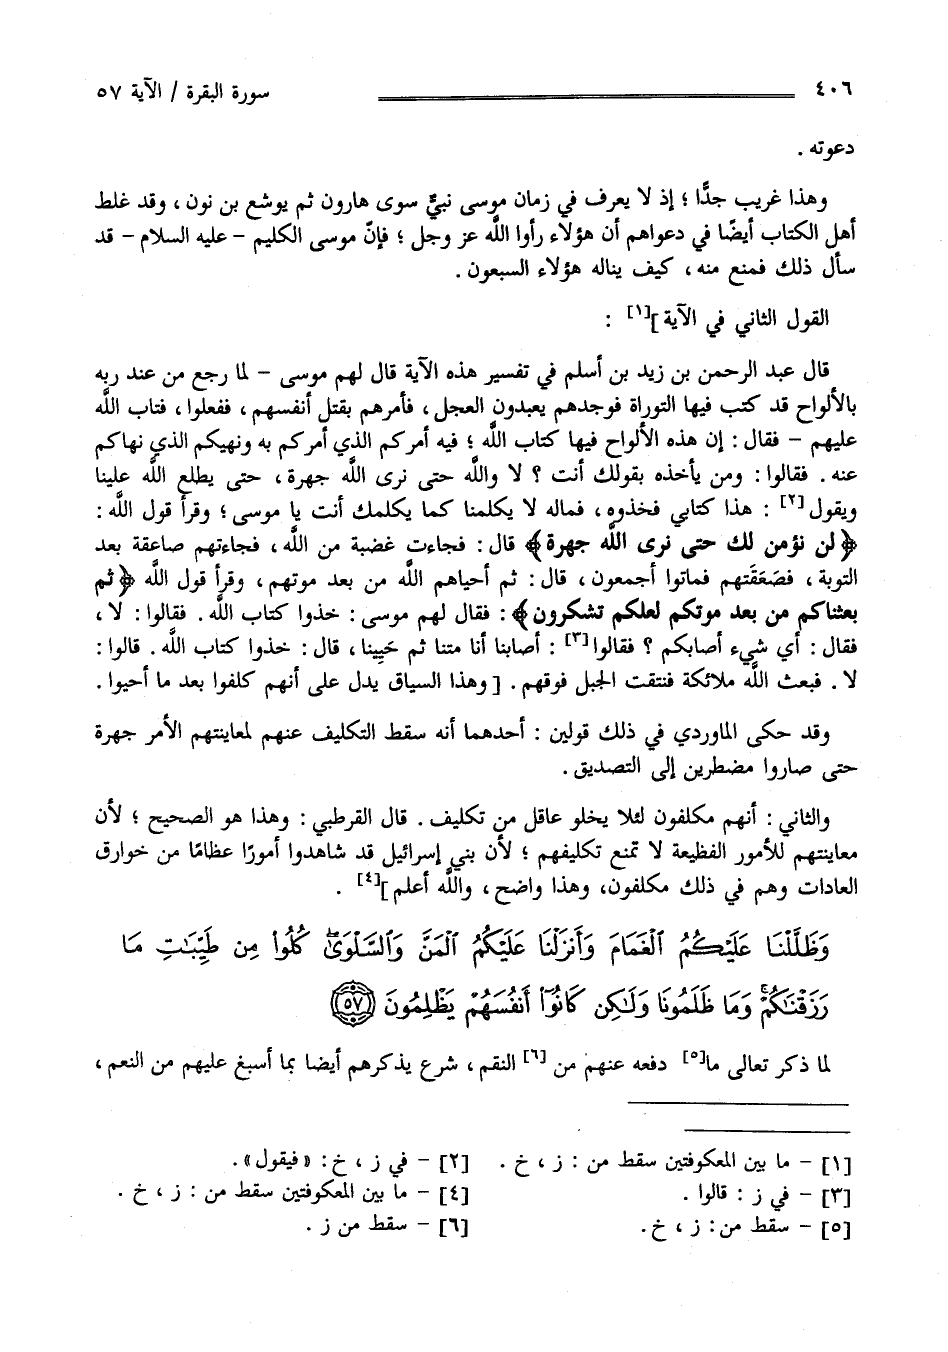 ٤٠٦ سورة البقرة / الآية ٥٧
دعوته .
وهذا غريب جدًّا ؛ إذ لا يعرف في زمان موسى نبيٌّ سوى هارون ثم يوشع بن نون ، وقد غلط
أهل الكتاب أيضًا في دعواهم أن هؤلاء رأوا اللَّه عز وجل ؛ فإنّ موسى الكليم – عليه السلام – قد
سأل ذلك فمنع منه ، كيف يناله هؤلاء السبعون .
القول الثاني في الآية ][١] :
قال عبد الرحمن بن زيد بن أسلم في تفسير هذه الآية قال لهم موسى – لما رجع من عند ربه
بالألواح قد كتب فيها التوراة فوجدهم يعبدون العجل ، فأمرهم بقتل أنفسهم ، ففعلوا ، فتاب اللَّه
عليهم – فقال : إن هذه الألواح فيها كتاب اللَّه ؛ فيه أمركم الذي أمركم به ونهيكم الذي نهاكم
عنه . فقالوا : ومن يأخذه بقولك أنت ؟ لا واللَّه حتى نرى اللَّه جهرة ، حتى يطلع اللَّه علينا
ويقول [٢] : هذا كتابي فخذوه ، فماله لا يكلمنا كما يكلمك أنت يا موسى ؛ وقرأ قول اللَّه :
﴿لن نؤمن لك حتى نرى اللَّه جهرة﴾ قال : فجاءت غضبة من اللَّه ، فجاءتهم صاعقة بعد
التوبة ، فصَعَقَتهم فماتوا أجمعون ، قال : ثم أحياهم اللَّه من بعد موتهم ، وقرأ قول اللَّه ﴿ثم
بعثناكم من بعد موتكم لعلكم تشكرون﴾ : فقال لهم موسى : خذوا كتاب اللَّه . فقالوا : لا ،
فقال : أي شيء أصابكم ؟ فقالوا [٣] : أصابنا أنا متنا ثم حَيِينا ، قال : خذوا كتاب اللَّه . قالوا :
لا . فبعث اللَّه ملائكة فنتقت الجبل فوقهم . [ وهذا السياق يدل على أنهم كلفوا بعد ما أحيوا .
وقد حكى الماوردي في ذلك قولين : أحدهما أنه سقط التكليف عنهم لمعاينتهم الأمر جهرة
حتى صاروا مضطرين إلى التصديق .
والثاني : أنهم مكلفون لئلا يخلو عاقل من تكليف . قال القرطبي : وهذا هو الصحيح ؛ لأن
معاينتهم للأمور الفظيعة لا تمنع تكليفهم ؛ لأن بني إسرائيل قد شاهدوا أمورًا عظامًا من خوارق
العادات وهم في ذلك مكلفون، وهذا واضح ، واللَّه أعلم ][٤] .
وَظَلَّلْنَا عَلَيْكُمُ ٱلْغَمَامَ وَأَنزَلْنَا عَلَيْكُمُ ٱلْمَنَّ وَٱلسَّلْوَىٰ كُلُوا۟ مِن طَيِّبَـٰتِ مَا
رَزَقْنَـٰكُمْ وَمَا ظَلَمُونَا وَلَـٰكِن كَانُوٓا۟ أَنفُسَهُمْ يَظْلِمُونَ ﴿٥٧﴾
لما ذكر تعالى ما[٥] دفعه عنهم من [٦] النقم ، شرع يذكرهم أيضا بما أسبغ عليهم من النعم ،
[١] – ما بين المعكوفتين سقط من : ز ، خ . [٢] – في ز ، خ : «فيقول» .
[٣] – في ز : قالوا . [٤] – ما بين المعكوفتين سقط من : ز ، خ .
[٥] – سقط من : ز ، خ . [٦] – سقط من ز .